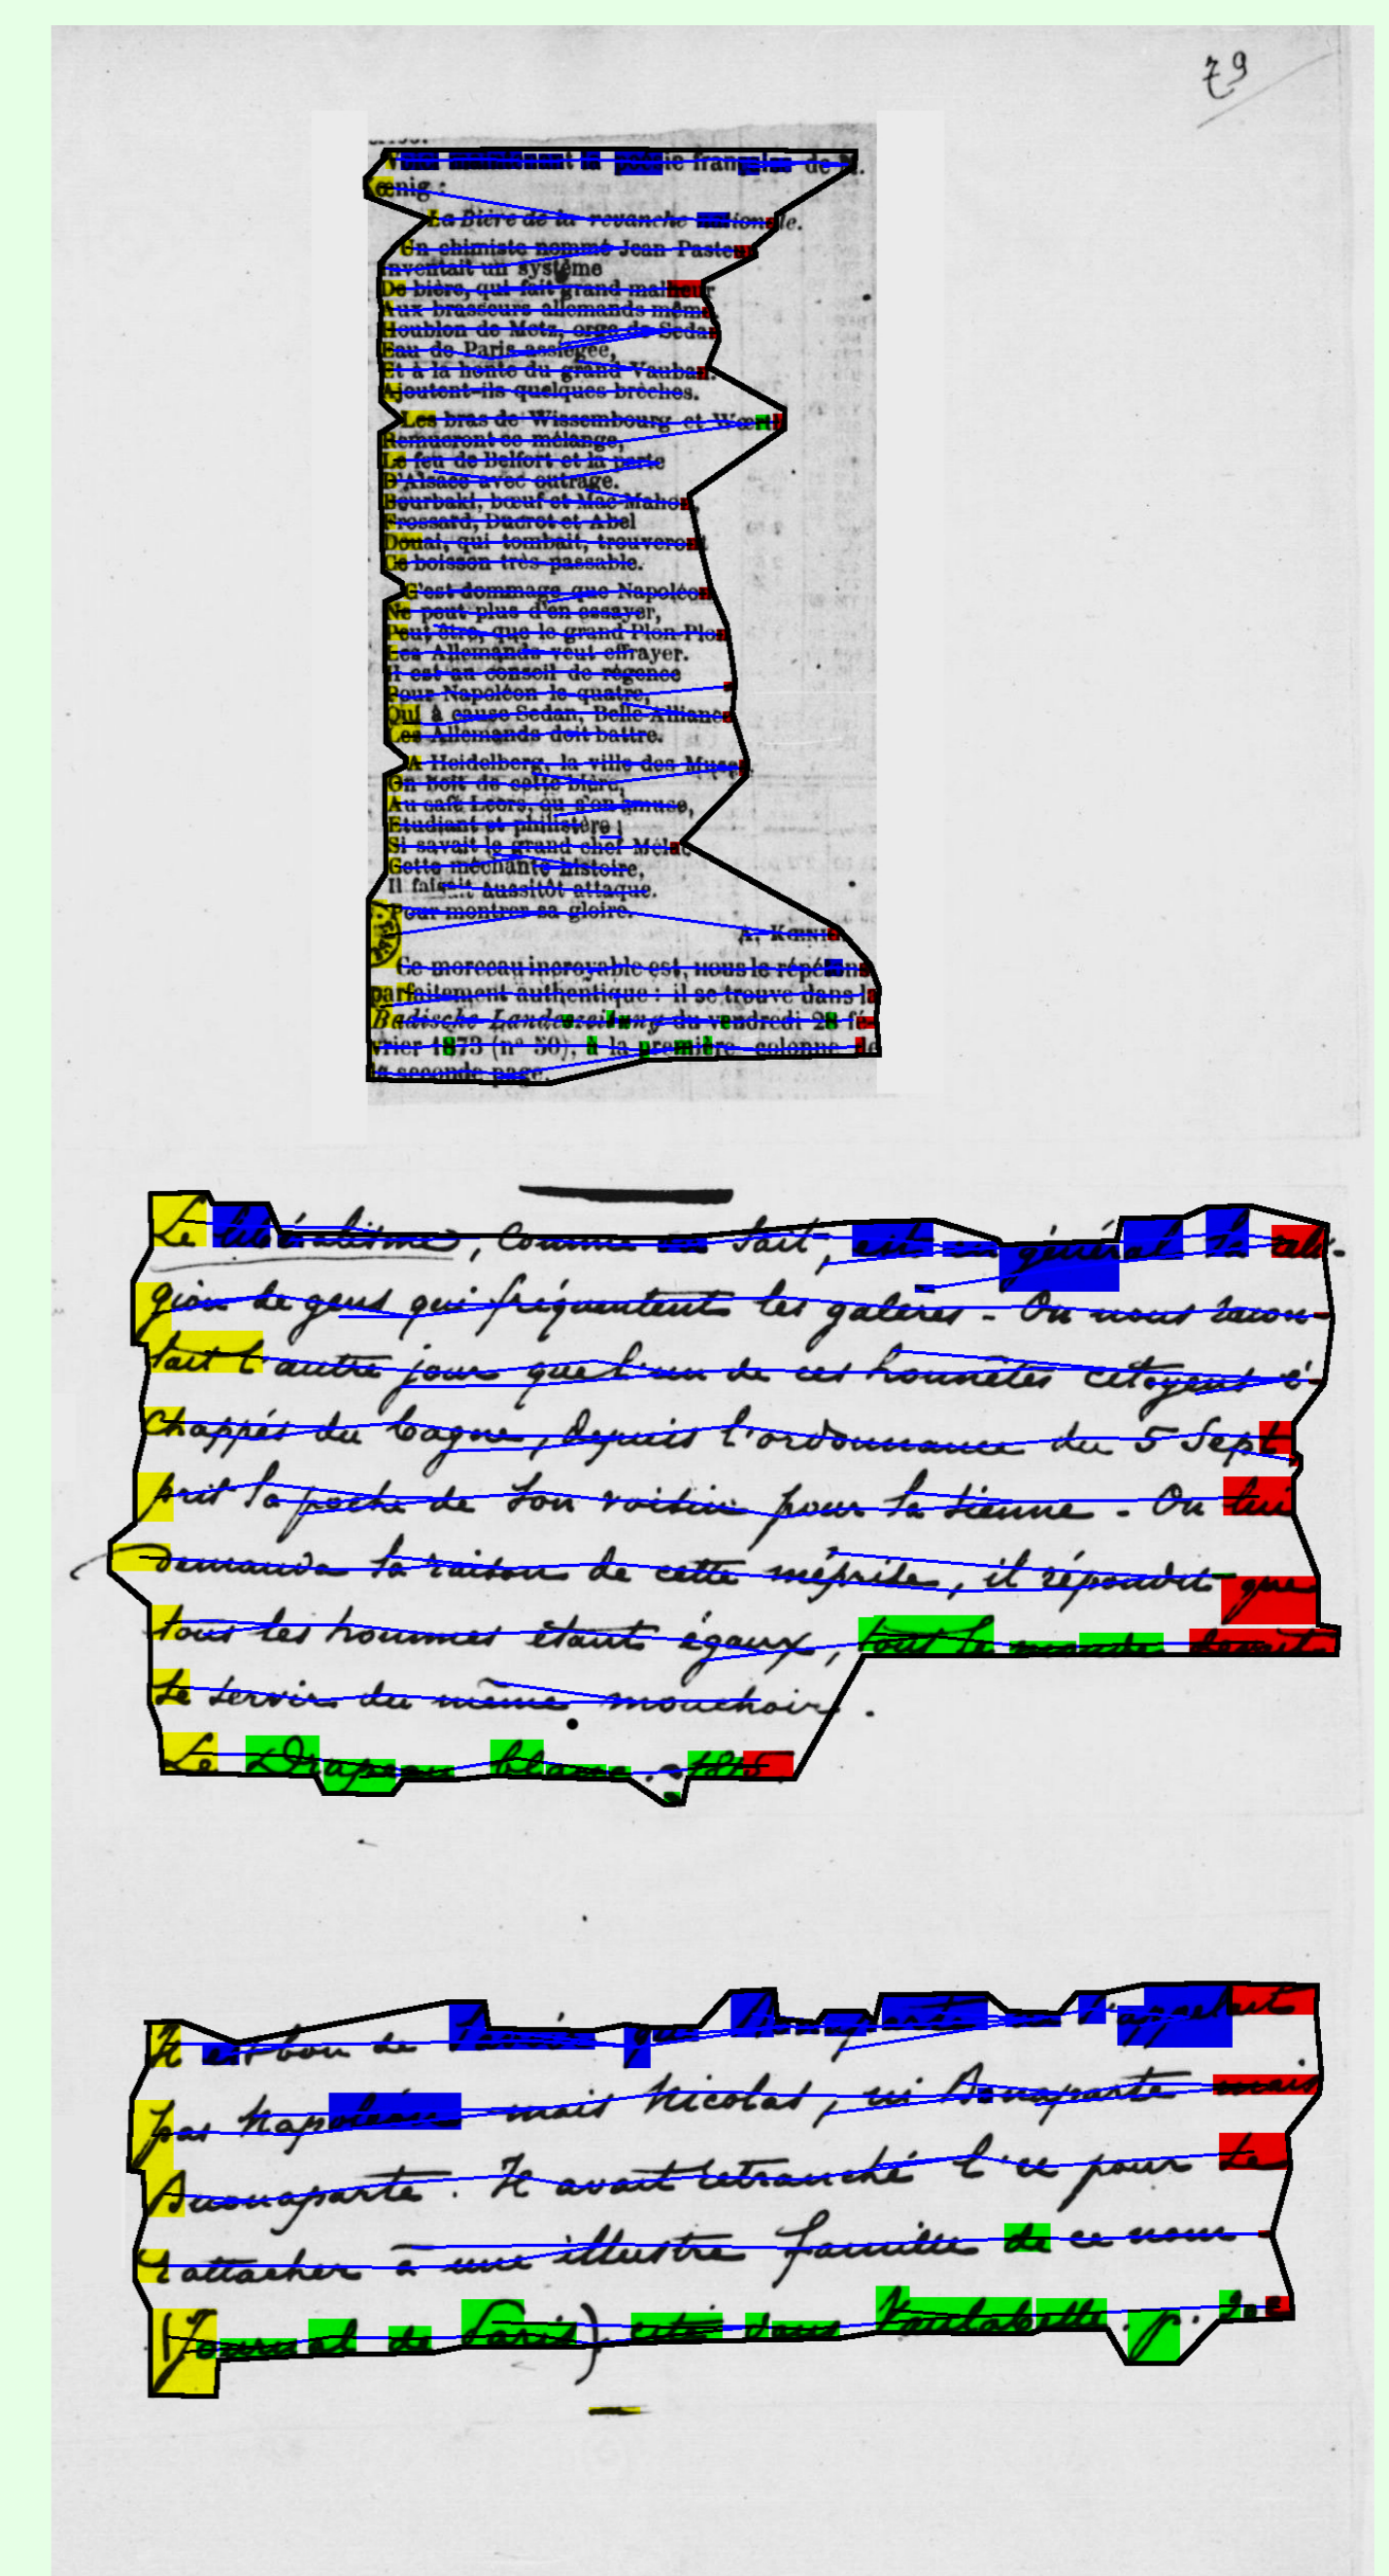 79
Voici maintenant la poésie française de M.
Kœnig :
La Bière de la revanche nationale.
Un chimiste nommé Jean Pasteur
Inventait un système
De bière, qui fait grand malheur
Aux brasseurs allemands même
Houblon de Metz, orge de Sedan
Eau de Paris assiégée,
Et à la honte du grand Vauban.
Ajoutent-ils quelques brèches.
Les bras de Wissembourg et Wœrth
Remueront ce mélange,
Le feu de Belfort et la perte
D'Alsace avec outrage.
Bourbaki, bœuf et Mac-Mahon,
Frossard, Ducrot et Abel
Douai, qui tombait, trouveront
Ce boisson très-passable.
C'est dommage que Napoléon
Ne peut plus d'en essayer,
Peut être, que le grand Plon-Plon
Les Allemands veut effrayer.
Il est au conseil de régence
Pour Napoléon le quatre,
Qui à cause Sedan, Belle-Alliance
Les Allemands doit battre.
A Heidelberg, la ville des Muses
On boit de cette bière,
Au café Leers, ou s'en amuse,
Etudiant et philistère ;
Si savait le grand chef Mélac
Cette méchante histoire,
Il faisait aussitôt attaque.
Pour montrer sa gloire.
A. KŒNIG.
Ce morceau incroyable est, nous le répétons
parfaitement authentique : il se trouve dans la
Badische Landeszeitung du vendredi 28 fé-
vrier 1873 (n° 50), à la première colonne de
la seconde page.
Le libéralisme, comme on sait, est en général la reli-
gion de gens qui fréquentent les galères - On nous racon-
tait l'autre jour que l'un de ces honnêtes citoyens é-
chappés du bagne, depuis l'ordonnance du 5 Sept.
prit la poche de son voisin pour la sienne - On lui
demanda la raison de cette méprise, il répondit que
tous les hommes étant égaux, tout le monde devait
se servir du même mouchoir.
Le Drapeau blanc - 1815.
Il est bon de savoir que Bonaparte ne s'appelait
pas Napoléon mais Nicolas, ni Bonaparte mais
Buonaparte. Il avait retranché l'u pour se
rattacher à une illustre famille de ce nom
(Journal de Paris) cité dans Vaulabelle. p. 20